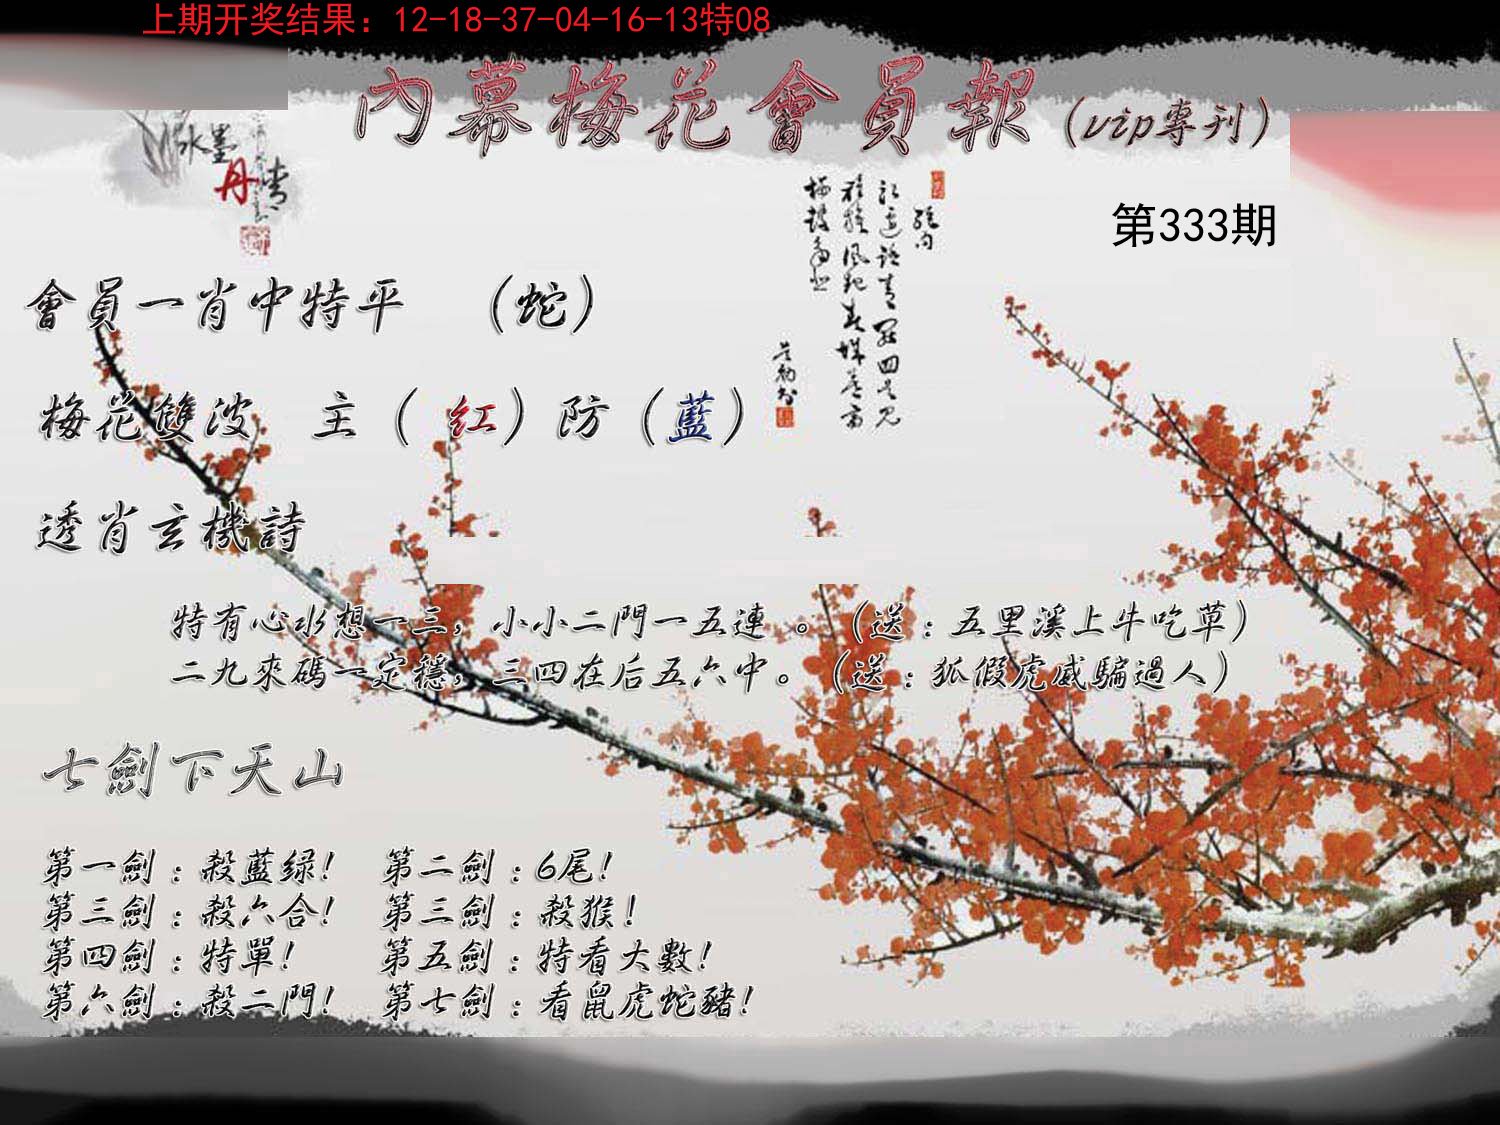 上期开奖结果：12-18-37-04-16-13特08
內幕梅花會員報（vip專刊）
水墨
丹青
第333期
會員一肖中特平 （蛇）
梅花雙波 主（紅）防（藍）
透肖玄機詩
特有心水想一三，小小二門一五連。（送：五里溪上牛吃草）
二九來碼一定穩，三四在后五六中。（送：狐假虎威騙過人）
七劍下天山
第一劍：殺藍绿！ 第二劍：6尾！
第三劍：殺六合！ 第三劍：殺猴！
第四劍：特單！ 第五劍：特看大數！
第六劍：殺二門！ 第七劍：看鼠虎蛇豬！